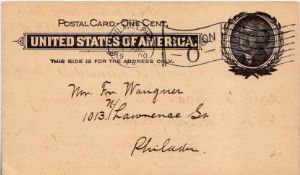 POSTAL CARD-ONE CENT.
UNITED STATES OF AMERICA.
THIS SIDE IS FOR THE ADDRESS ONLY.
Mr. Fr. Waugner
1013. Lawrence St
Philada